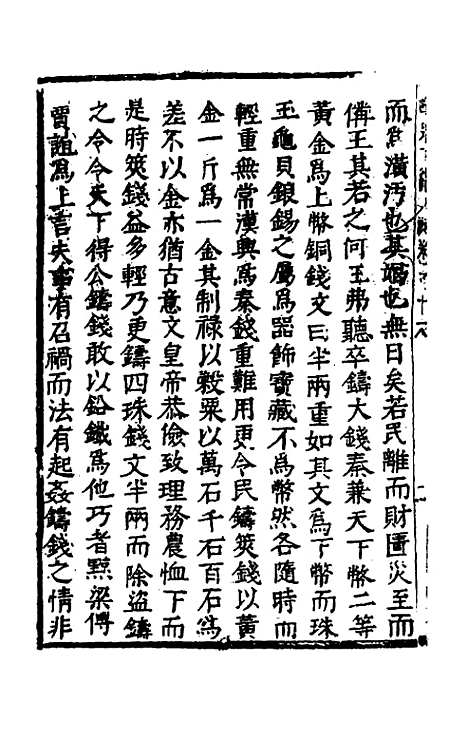 而爲潢汚也其竭也無日矣若民離而財匱災至而
俻王其若之何王弗聽卒鑄大錢秦兼天下幣二等
黃金爲上幣銅錢文曰半兩重如其文爲下幣而珠
玉龜貝銀錫之屬爲噐飾寶藏不爲幣然各隨時而
輕重無常漢興爲秦錢重難用更令民鑄筴錢以黃
金一斤爲一金其制祿以糓粟以萬石千石百石爲
差不以金亦猶古意文皇帝恭儉致理務農恤下而
是時筴錢益多輕乃更鑄四珠錢文半兩而除盜鑄
之令令天下得公鑄錢敢以鉛鐵爲他巧者黥梁傅
賈誼爲上言夫事有召禍而法有起姦鑄錢之情非